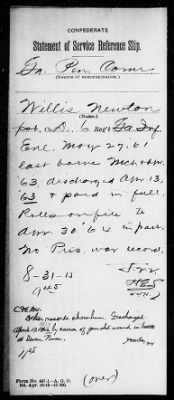 CONFEDERATE
Statement of Service Reference Slip.
Ga. Pen. Com.
(Source of communication.)
Willis Newton
(Name.)
pvt. Co. B, 6 Ga Inf
Enl. May 27, 61
last borne
'63, discharged Apr 13,
'63 & paid in full.
Rolls on file to
Apr 30 '64 in part.
No Pris. war record.
8-31-15
Other records show him discharged
April 13 by reason of gun shot wound in
at Seven Pines.
(over)